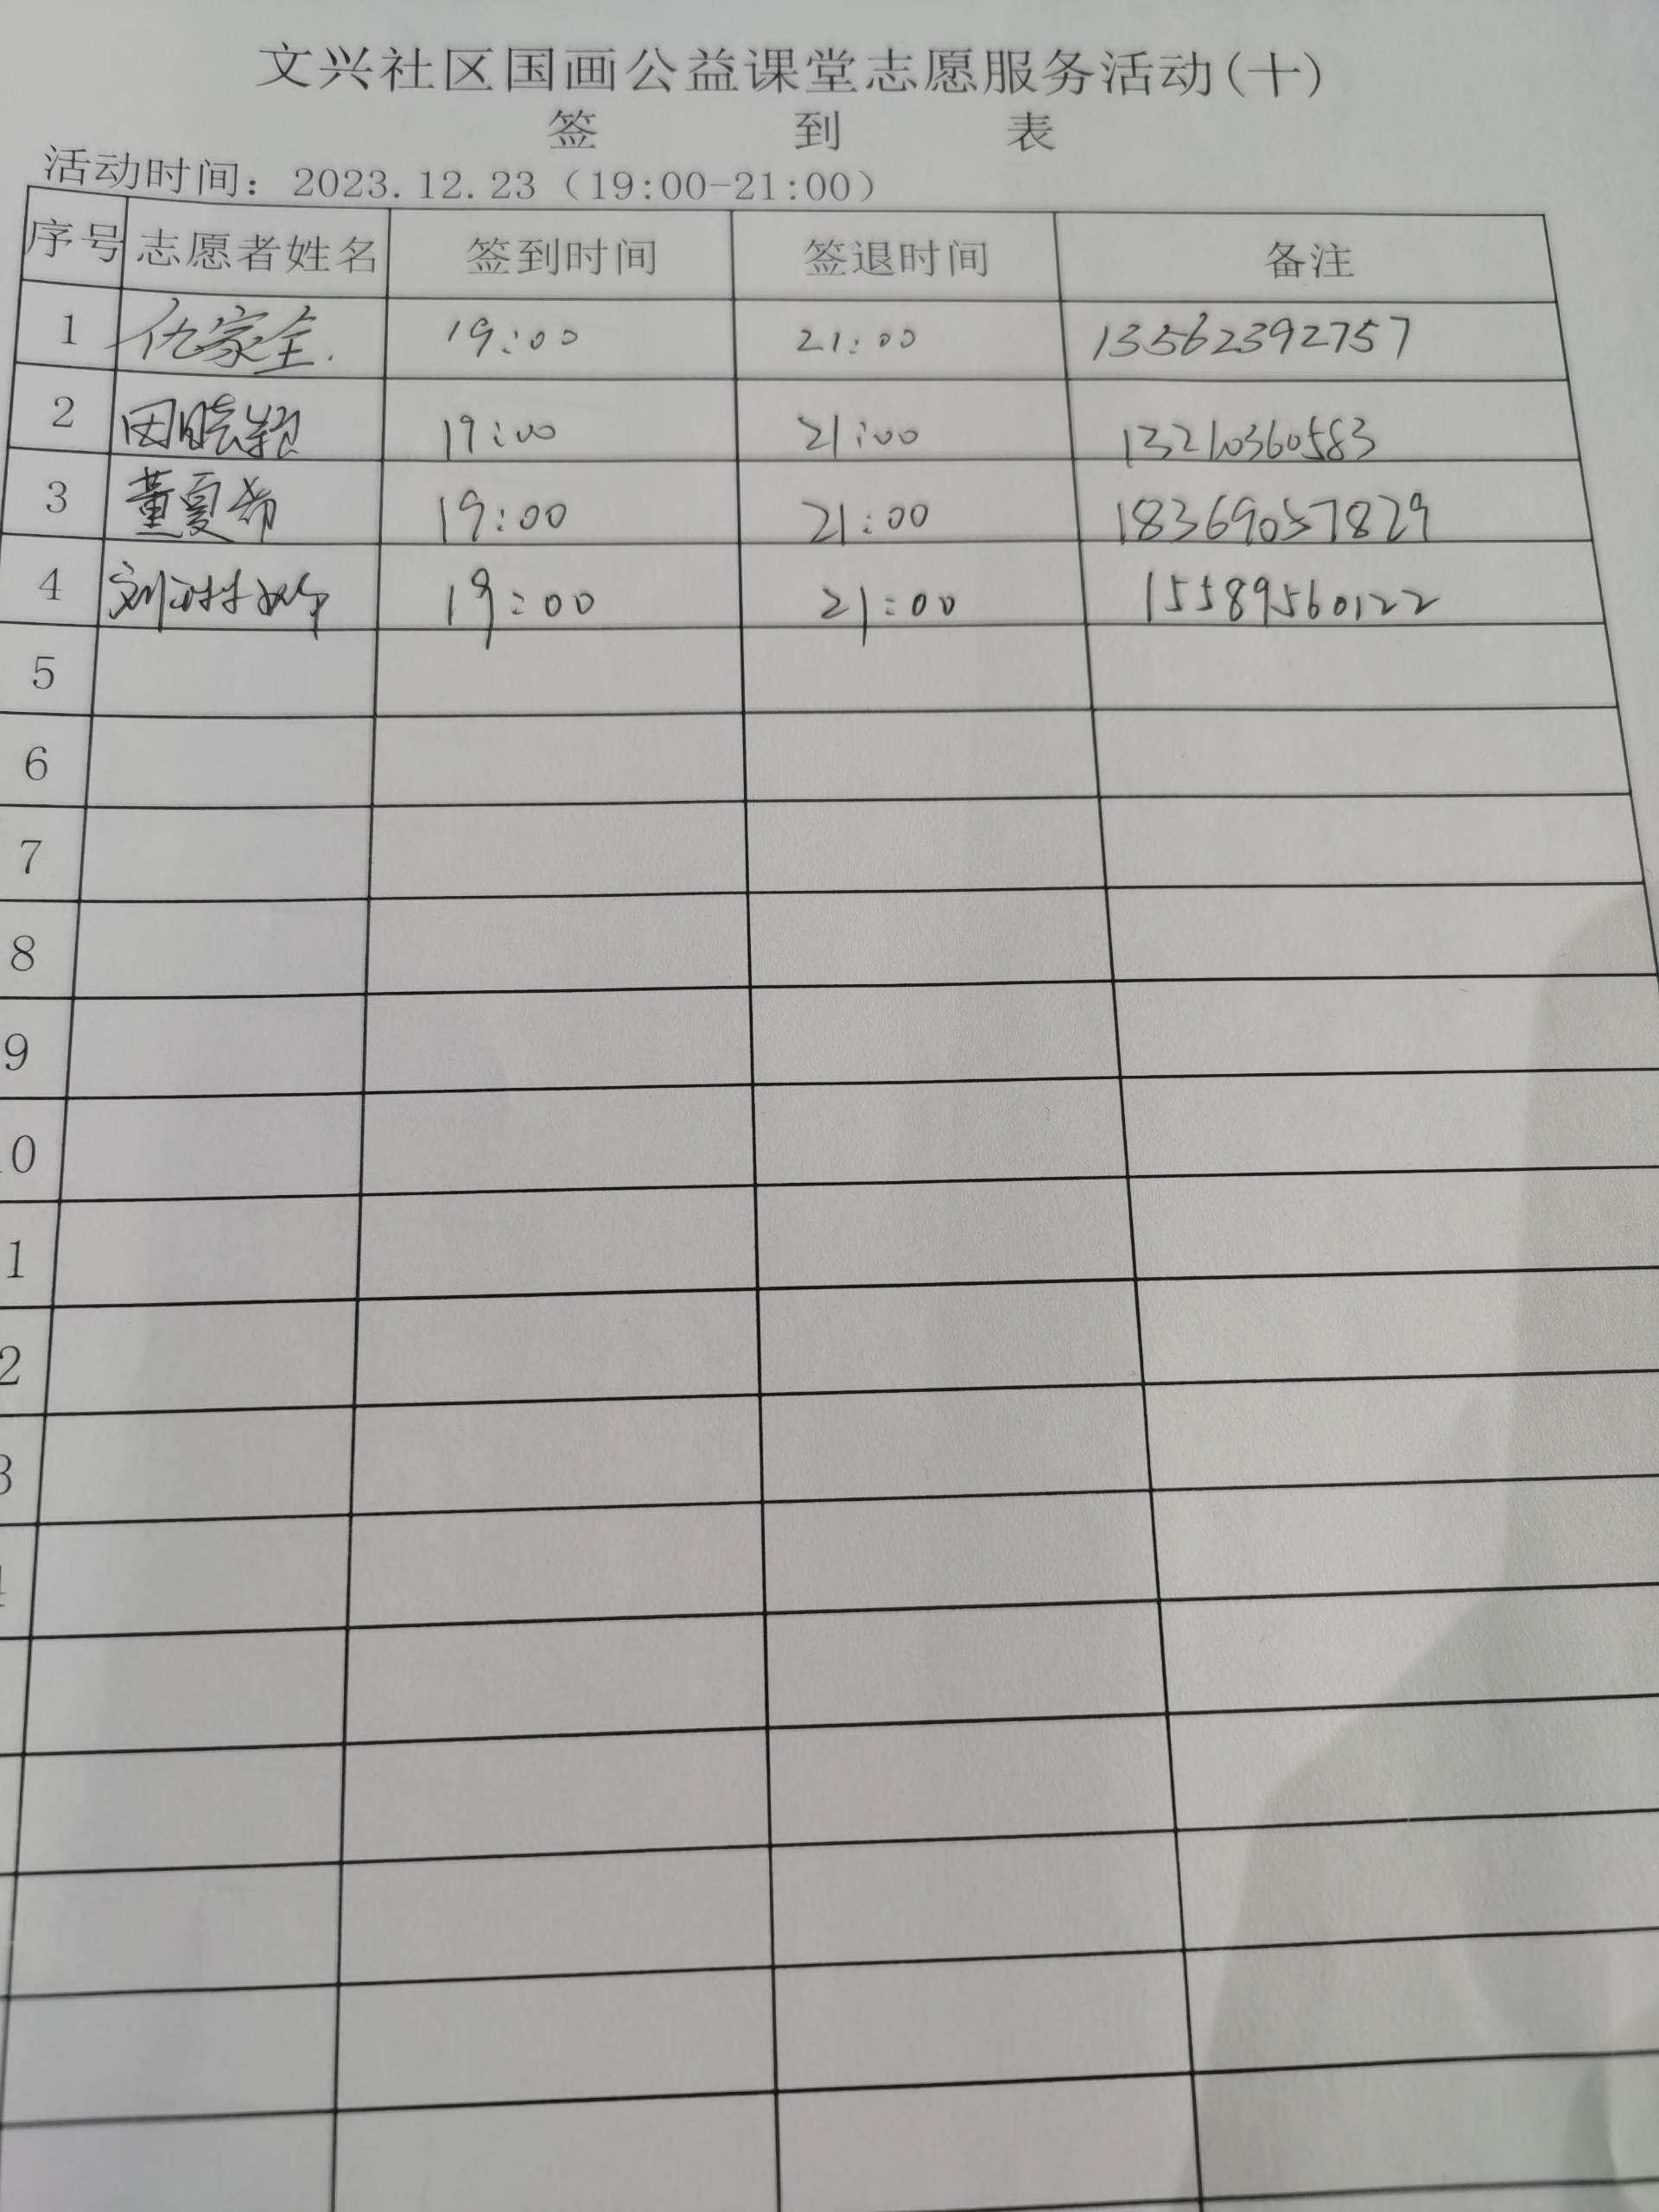 文兴社区国画公益课堂志愿服务活动(十)
签 到 表
活动时间：2023.12.23（19:00-21:00）
序号 志愿者姓名 签到时间 签退时间 备注
1 仇家全. 19:00 21:00 13562392757
2 田晓颖 19:00 21:00 13210360583
3 董夏希 19:00 21:00 18369057829
4 刘 19:00 21:00 15589560122
5
6
7
8
9
0
1
2
3